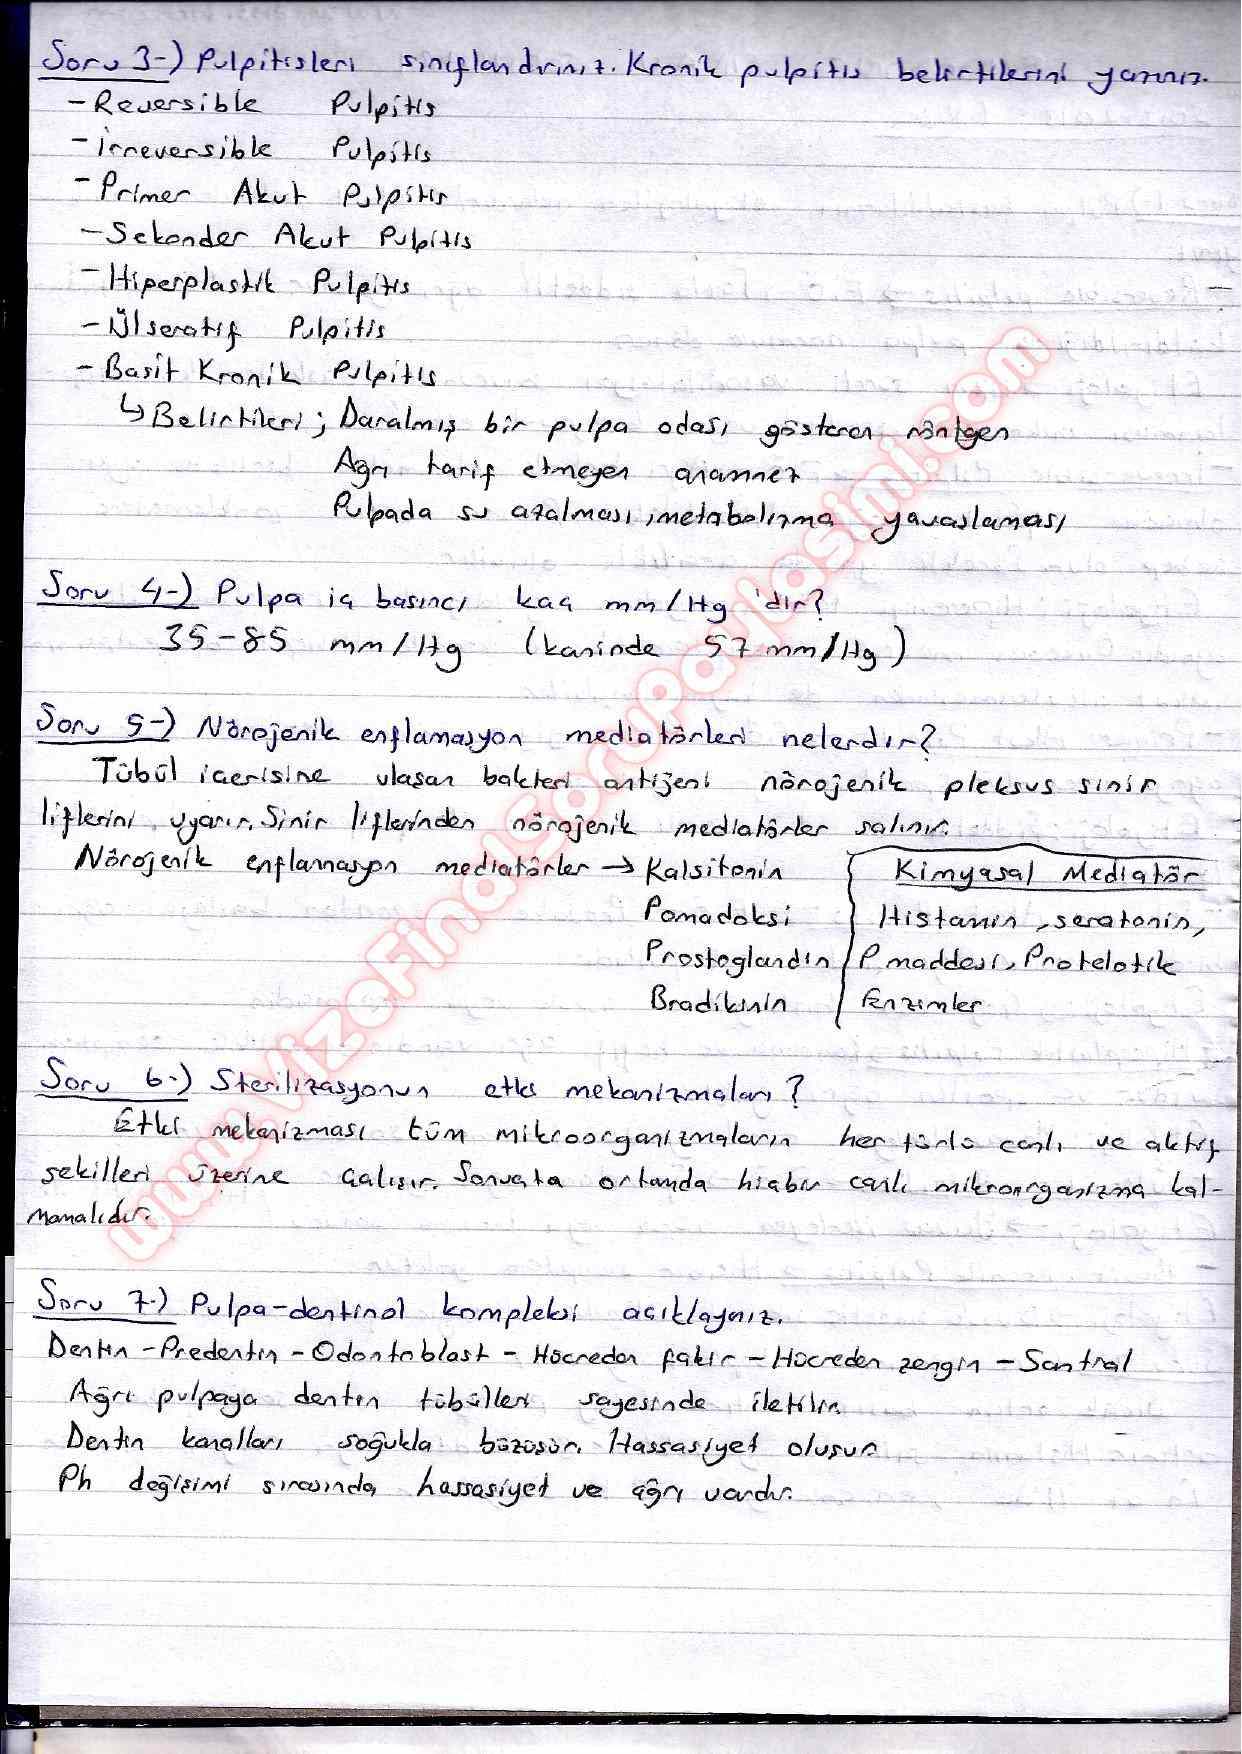 Soru 3-) Pulpitisleri sınıflandırınız. Kronik pulpitis belirtilerini yazınız.
- Reversible Pulpitis
- irreversible Pulpitis
- Primer Akut Pulpitis
- Sekonder Akut Pulpitis
- Hiperplastik Pulpitis
- Ülseratif Pulpitis
- Basit Kronik Pulpitis
↳ Belirtileri; Daralmış bir pulpa odası gösteren röntgen
Ağrı tarif etmeyen anamnez
Pulpada su azalması, metabolizma yavaşlaması
Soru 4-) Pulpa iç basıncı kaç mm/Hg 'dir?
35-85 mm/Hg (kaninde 57 mm/Hg)
Soru 5-) Nörojenik enflamasyon mediatörleri nelerdir?
Tübül içerisine ulaşan bakteri antijeni nörojenik pleksus sinir
liflerini uyarır. Sinir liflerinden nörojenik mediatörler salınır.
Nörojenik enflamasyon mediatörler → Kalsitonin
Pomadoksi
Prostoglandin
Bradikinin
Kimyasal Mediatör
Histamin, seratonin,
P maddesi, Protelotik
Enzimler
Soru 6-) Sterilizasyonun etki mekanizmaları?
Etki mekanizması tüm mikroorganizmaların her türlü canlı ve aktif
şekilleri üzerine çalışır. Sonuçta ortamda hiçbir canlı mikroorganizma kal-
mamalıdır.
Soru 7-) Pulpa-dentinal kompleksi açıklayınız.
Dentin - Predentin - Odontoblast - Hücreden fakir - Hücreden zengin - Santral
Ağrı pulpaya dentin tübülleri sayesinde iletilir.
Dentin kanalları soğukla büzüşür. Hassasiyet oluşur.
Ph değişimi sırasında hassasiyet ve ağrı vardır.
www.VizeFinalSoruPaylasimi.com